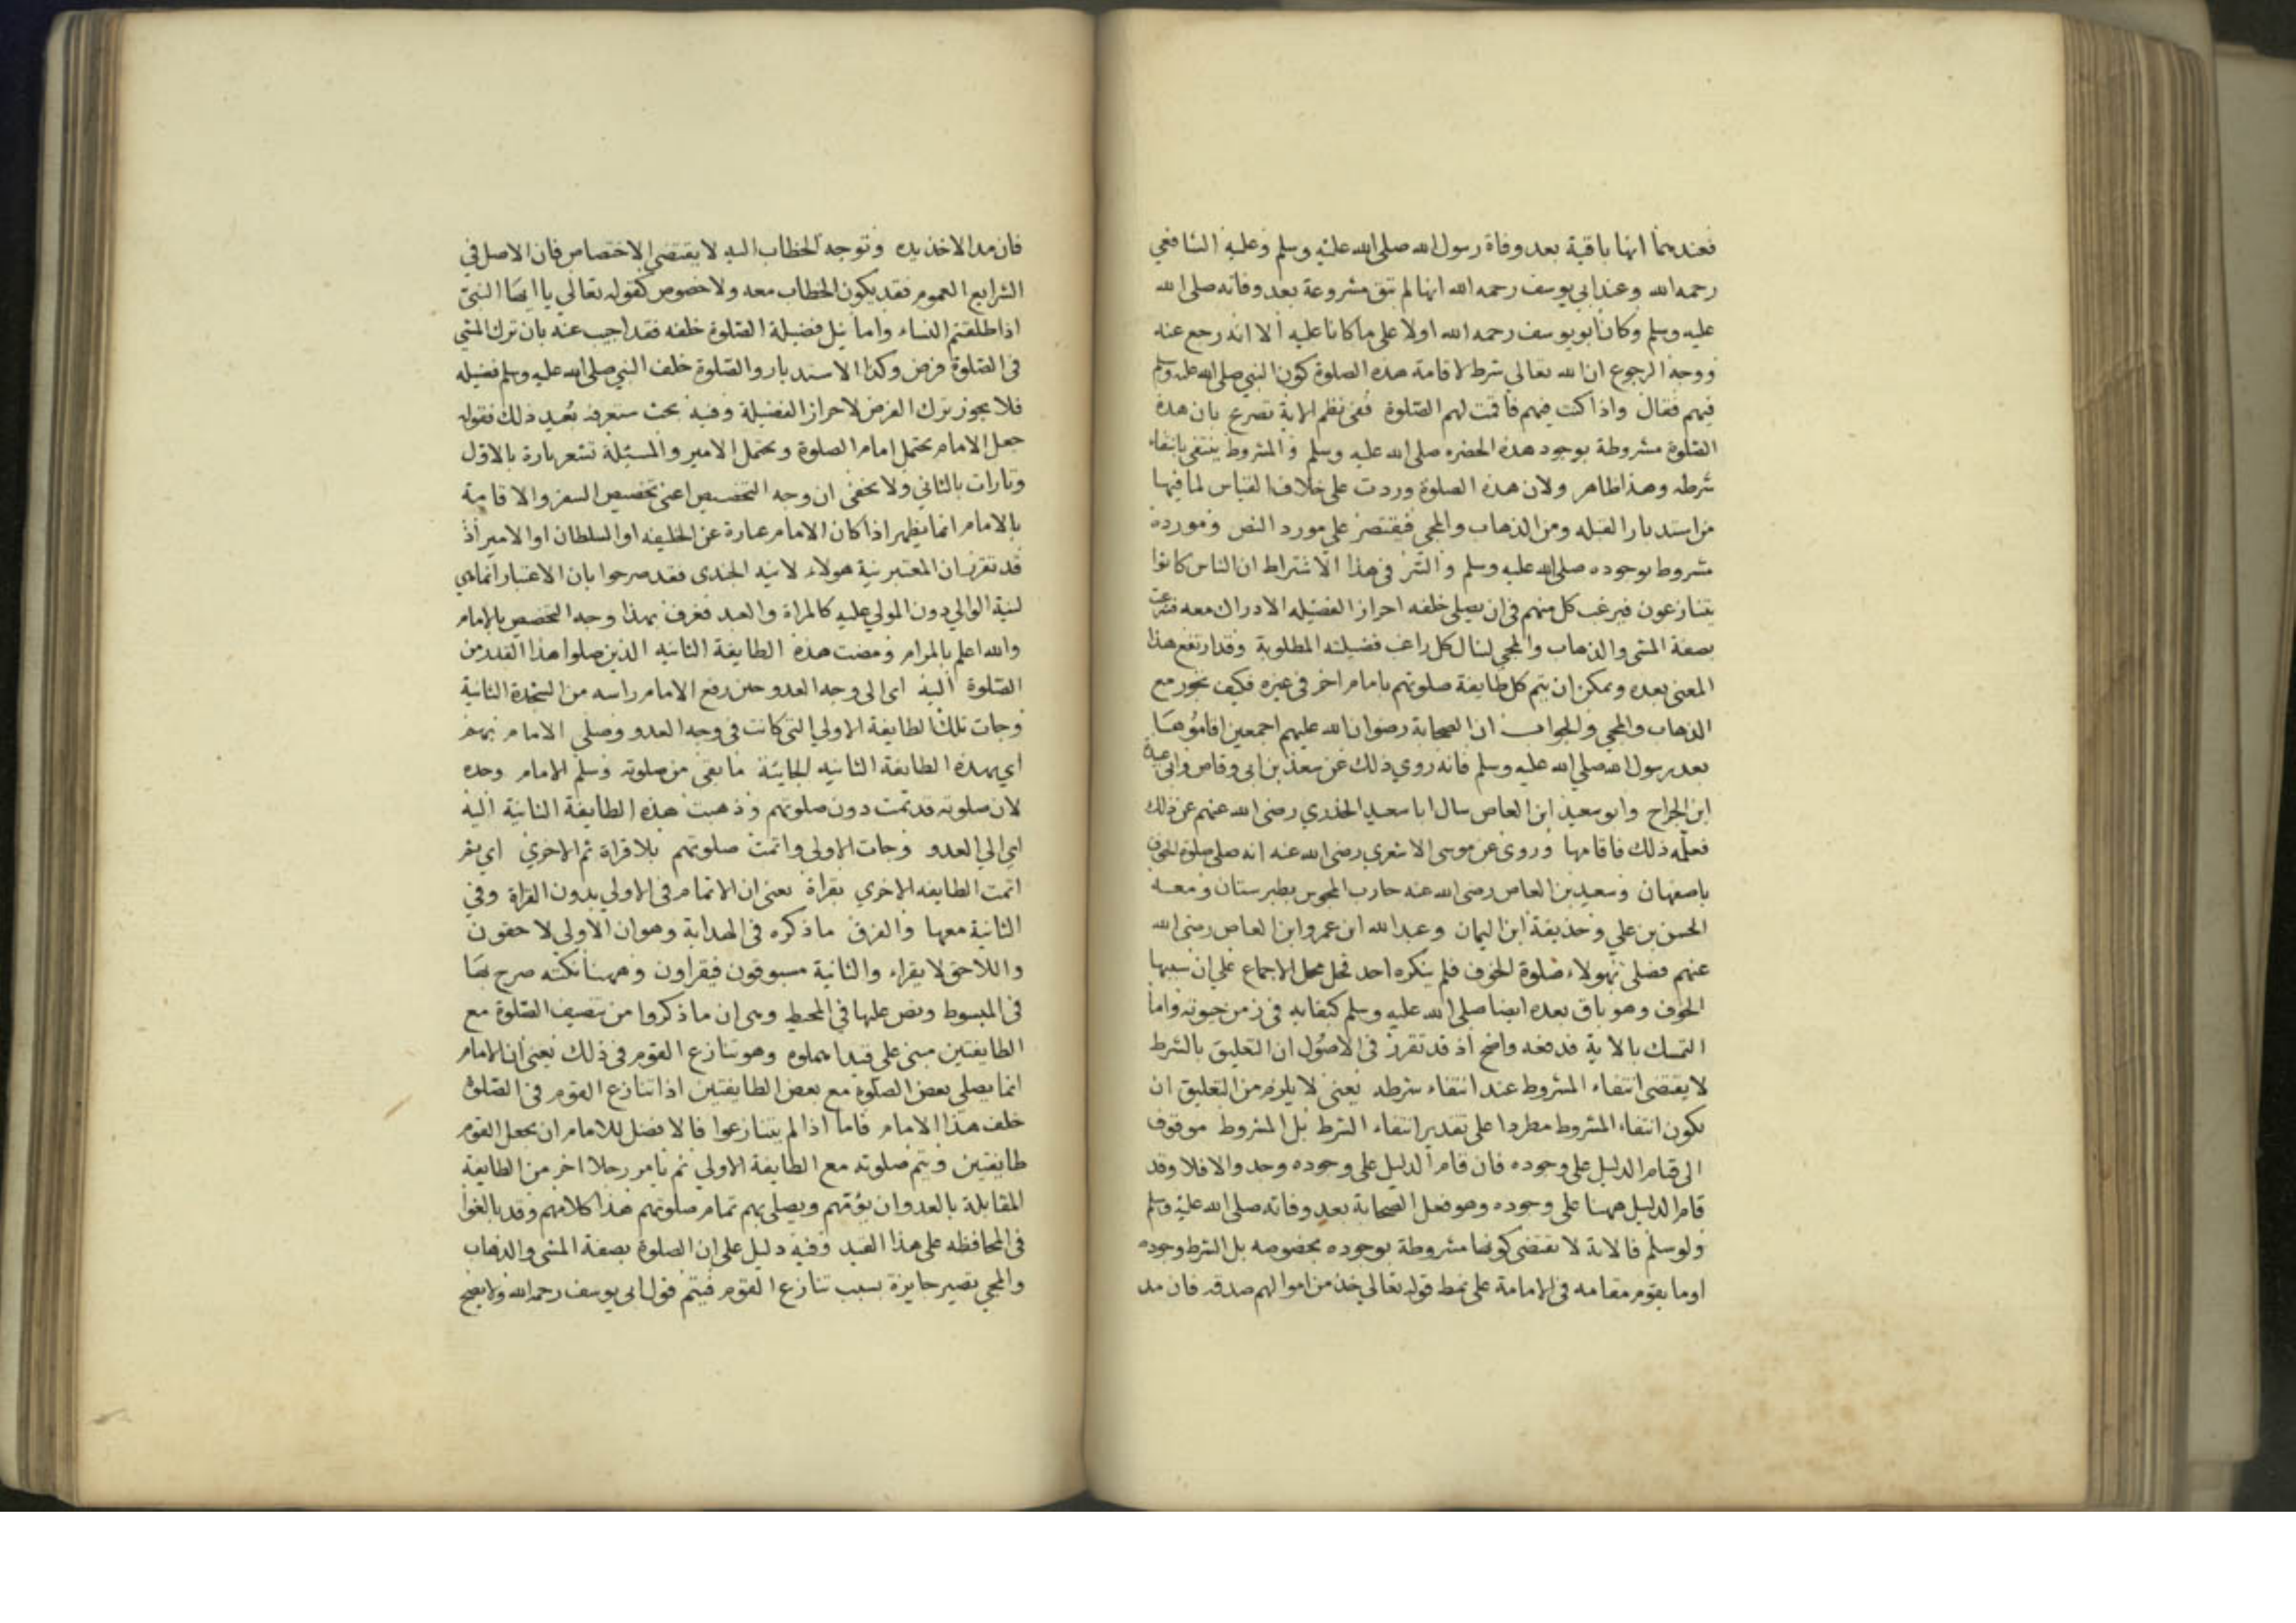 فعندهما انها باقية بعد وفاة رسول الله صلى الله عليه وسلم وعليه الشافعي
رحمه الله وعند ابي يوسف رحمه الله انها لم تبق مشروعة بعد وفاته صلى الله
عليه وسلم وكان ابو يوسف رحمه الله اولا على ما كانا عليه الا انه رجع عنه
ووجه الرجوع ان الله تعالى شرط لاقامة هذه الصلوة كون النبي صلى الله عليه وسلم
فيهم فقال واذا كنت فيهم فاقمت لهم الصلوة ففي نظم الاية تصرع بان هذه
الصلوة مشروطة بوجود هذه الحضره صلى الله عليه وسلم والمشروط ينتفي بانتفاء
شرطه وهذا ظاهر ولان هذه الصلوة وردت على خلاف القياس لما فيها
من استدبار القبله ومن الذهاب والمجي فيقتصر على مورد النص ومورده
مشروط بوجوده صلى الله عليه وسلم والسر في هذا الاشتراط ان الناس كانوا
يتنازعون فيرغب كل منهم في ان يصلى خلفه احراز الفضيله الادراك معه فشرعت
بصفة المشى والذهاب والمجي لينال كل راغب فضيلته المطلوبة وقد ارتفع هذا
المعنى بعده ويمكن ان يتم كل طايفة صلوتهم بامام اخر في غيره فكيف يجوز مع
الذهاب والمجي والجواب ان الصحابة رضوان الله عليهم اجمعين اقاموها
بعد رسول الله صلي الله عليه وسلم فانه روي ذلك عن سعد بن ابى وقاص وابى عبيدة
ابن الجراح وابو سعيد ابن العاص سال ابا سعيد الخدري رضى الله عنهم عن ذلك
فعلمه ذلك فاقامها وروى عن موسى الاشعري رضى الله عنه انه صلى صلوة الخوف
باصفهان وسعيد بن العاص رضى الله عنه حارب المجوس بطبرستان ومعه
الحسن بن علي وحذيفة ابن اليمان وعبد الله ابن عمرو ابن العاص رضى الله
عنهم فصلى بهولاء صلوة الخوف فلم ينكره احد فحل محل الاجماع على ان سببها
الخوف وهو باق بعده ايضا صلى الله عليه وسلم كبقايه في زمن حيوته واما
التمسك بالاية فدفعه واضح اذ قد تقرر في الاصول ان التعليق بالشرط
لا يقتضى انتفاء المشروط عند انتفاء شرطه يعنى لا يلزم من التعليق ان
يكون انتفاء المشروط مطردا على تقدير انتفاء الشرط بل المشروط موقوف
الى قيام الدليل على وجوده فان قام الدليل على وجوده وجد والا فلا وقد
قام الدليل ههنا على وجوده وهو فعل الصحابة بعد وفاته صلى الله عليه وسلم
ولو سلم فالاية لا تقتضى كونها مشروطة بوجوده بخصوصه بل الشرط وجوده
او ما يقوم مقامه في الامامة على نمط قوله تعالى خذ من اموالهم صدقه فان مد
فان مد الاخذ بده وتوجه الخطاب اليه لا يقتضى الاختصاص فان الاصل في
الشرايع العموم فقد يكون الخطاب معه ولا خصوص كقوله تعالى يا ايها النبي
اذا طلقتم النساء واما نيل فضيلة الصلوة خلفه فقد اجيب عنه بان ترك المشي
في الصلوة فرض وكذا الاستدبار والصلوة خلف النبي صلى الله عليه وسلم فضيله
فلا يجوز ترك الفرض لاحراز الفضيلة وفيه بحث ستعرفه بعيد ذلك فقوله
جعل الامام يحتمل امام الصلوة ويحتمل الامير والمسئلة تشعر بارة بالاول
وتارات بالثاني ولا يخفى ان وجه التخصيص اعنى تخصيص السفر والاقامة
بالامام انما يظهر اذا كان الامام عبارة عن الخليفه او السلطان او الامير اذ
قد تقرر ان المعتبر نية هولاء لا نيه الجندى فقد صرحوا بان الاعتبار انما هى
لنية الوالي دون المولي عليه كالمراة والعبد فعرف بهذا وجه التخصيص بالامام
والله اعلم بالمرام ومضت هذه الطايفة الثانيه الذين صلوا هذا القدر من
الصلوة اليه اى الى وجه العدو حين رفع الامام راسه من السجدة الثانية
وجات تلك الطايفة الاولي التى كانت في وجه العدو وصلي الامام بهم
اي بهذه الطايفة الثانيه الجايئة ما بقى من صلوته وسلم الامام وحده
لان صلوته قد تمت دون صلوتهم وذهبت هذه الطايفة الثانية اليه
اى الى العدو وجات الاولى واتمت صلوتهم بلا قراة ثم الاخري اي
اتمت الطايفه الاخري بقراة يعنى ان الاتمام في الاولي بدون القراة وفي
الثانية معها والفرق ما ذكره في الهداية وهو ان الاولى لاحقون
واللاحق لا يقراء والثانية مسبوقون فيقراون وههنا نكته صرح بها
في المبسوط ونص عليها في المحيط وهى ان ما ذكروا من تنصيف الصلوة مع
الطايفتين مبنى على قيد اهملوه وهو تنازع القوم في ذلك يعنى ان الامام
انما يصلى بعض الصلوة مع بعض الطايفتين اذا تنازع القوم في الصلوة
خلف هذا الامام فاما اذا لم يتنازعوا فالافضل للامام ان يجعل القوم
طايفتين ويتم صلوته مع الطايفة الاولي ثم يامر رجلا اخر من الطايفة
المقابلة بالعدو ان يؤمهم ويصلى بهم تمام صلوتهم هذا كلامهم وقد بالغوا
في المحافظه على هذا القيد وفيه دليل على ان الصلوة بصفة المشى والذهاب
والمجي تصير جايزة بسبب تنازع القوم فيتم قول ابى يوسف رحمه الله ولا يصح